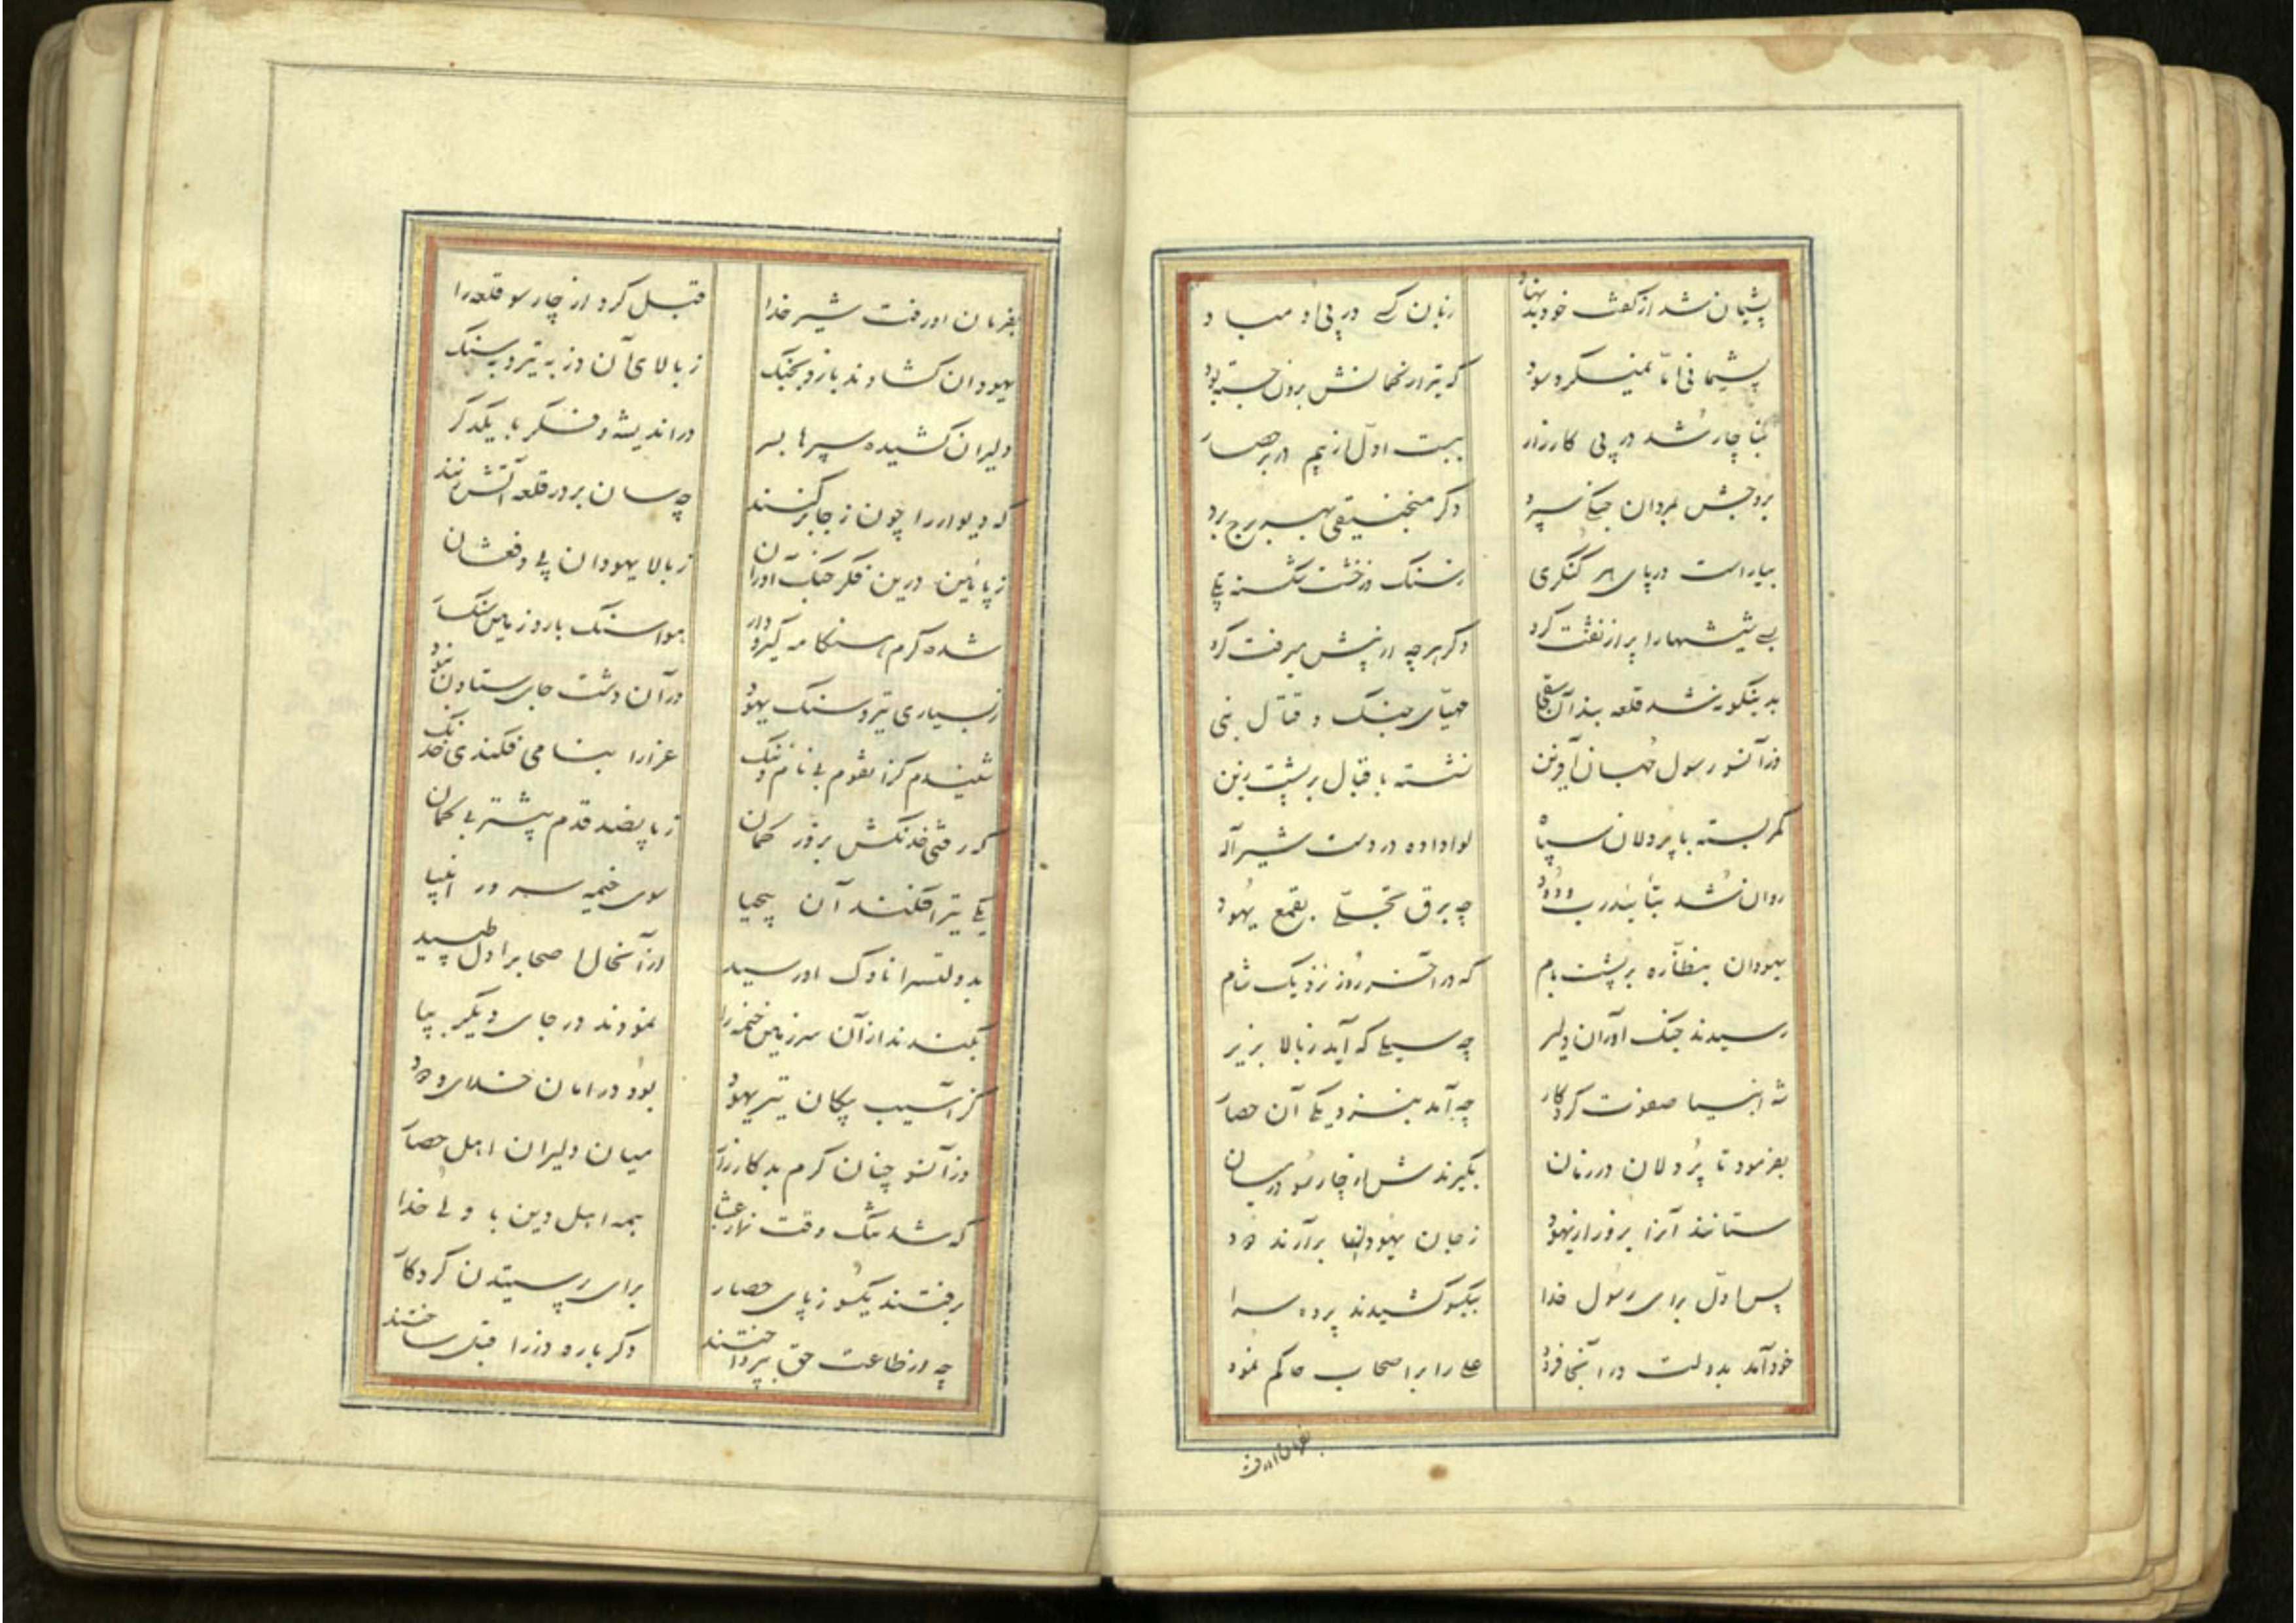 پشیمان شد از گفت خود بدنهاد زبان کسی در پی او مباد
پشیمانی اما نمیکرد سود که تیر از کمانش برون جسته بود
بناچار شد در پی کارزار ببست اول از بیم در بر حصار
بروجش بمردان جنگی سپرد دگر منجنیقی بهر برج برد
بیاراست در پای هر کنگری ز سنگ و ز خشت شکسته
بسی شیشها را پر از نفت کرد دگر هر چه از پیش میرفت کرد
بدینگونه شد قلعه بند آن شقی مهیای جنگ و قتال نبی
وز آنسو رسول جهان آفرین نشسته باقبال بر پشت زین
کمر بسته با پردلان سپاه لوا داده در دست شیر اله
روان شد بتأیید رب ودود چه برق تجلی بقمع یهود
یهودان بنظاره بر پشت بام که در آخر روز نزدیک شام
رسیدند جنگ آوران دلیر چه سیلی که آید ز بالا بزیر
شه انبیا صفوت کردگار چه آمد بنزدیکی آن حصار
بفرمود تا پردلان در زمان بگیرندش از چارسو در میان
ستانند آنرا بزور از یهود ز جان یهودان برآرند دود
پس اول برای رسول خدا بیکسو کشیدند پرده سرا
خود آمد بدولت در آنجا فرود علی را بر اصحاب حاکم نمود
بفرمان او رفت
بفرمان او رفت شیر خدا قبل کرد از چار سو قلعه را
یهودان کشادند بازو بجنگ ز بالای آن دز به تیر و به سنگ
دلیران کشیده سپرها بسر در اندیشه و فکر با یکدگر
که دیوار را چون ز جا بر کنند چه سان بر در قلعه آتش زنند
ز پائین درین فکر جنگ آوران ز بالا یهودان پی دفعشان
شده گرم هنگامه گیر و دار هوا سنگ بار و زمین سنگسار
ز بسیاری تیر و سنگ یهود در آن دشت جای ستادن نبود
شنیدم کز انقوم بی نام و ننگ عزارا بنامی فکندی خدنگ
که رفتی خدنگش بزور کمان ز پانصد قدم پیشتر بی گمان
یکی تیر افکند آن بیحیا سوی خیمه سرور انبیا
بدولتسرا ناوک او رسید از آنحال اصحاب را دل طپید
بکندند از آن سرزمین خیمه را نمودند در جای دیگر بپا
کز آسیب پیکان تیر یهود بود در امان خدای ودود
وز آنسو چنان گرم بد کارزار میان دلیران اهل حصار
که شد تنگ وقت نماز عشا همه اهل دین با ولی خدا
برفتند یکسو ز پای حصار برای پرستیدن کردگار
چه از طاعت حق بپرداختند دگر باره دز را قبل ساختند